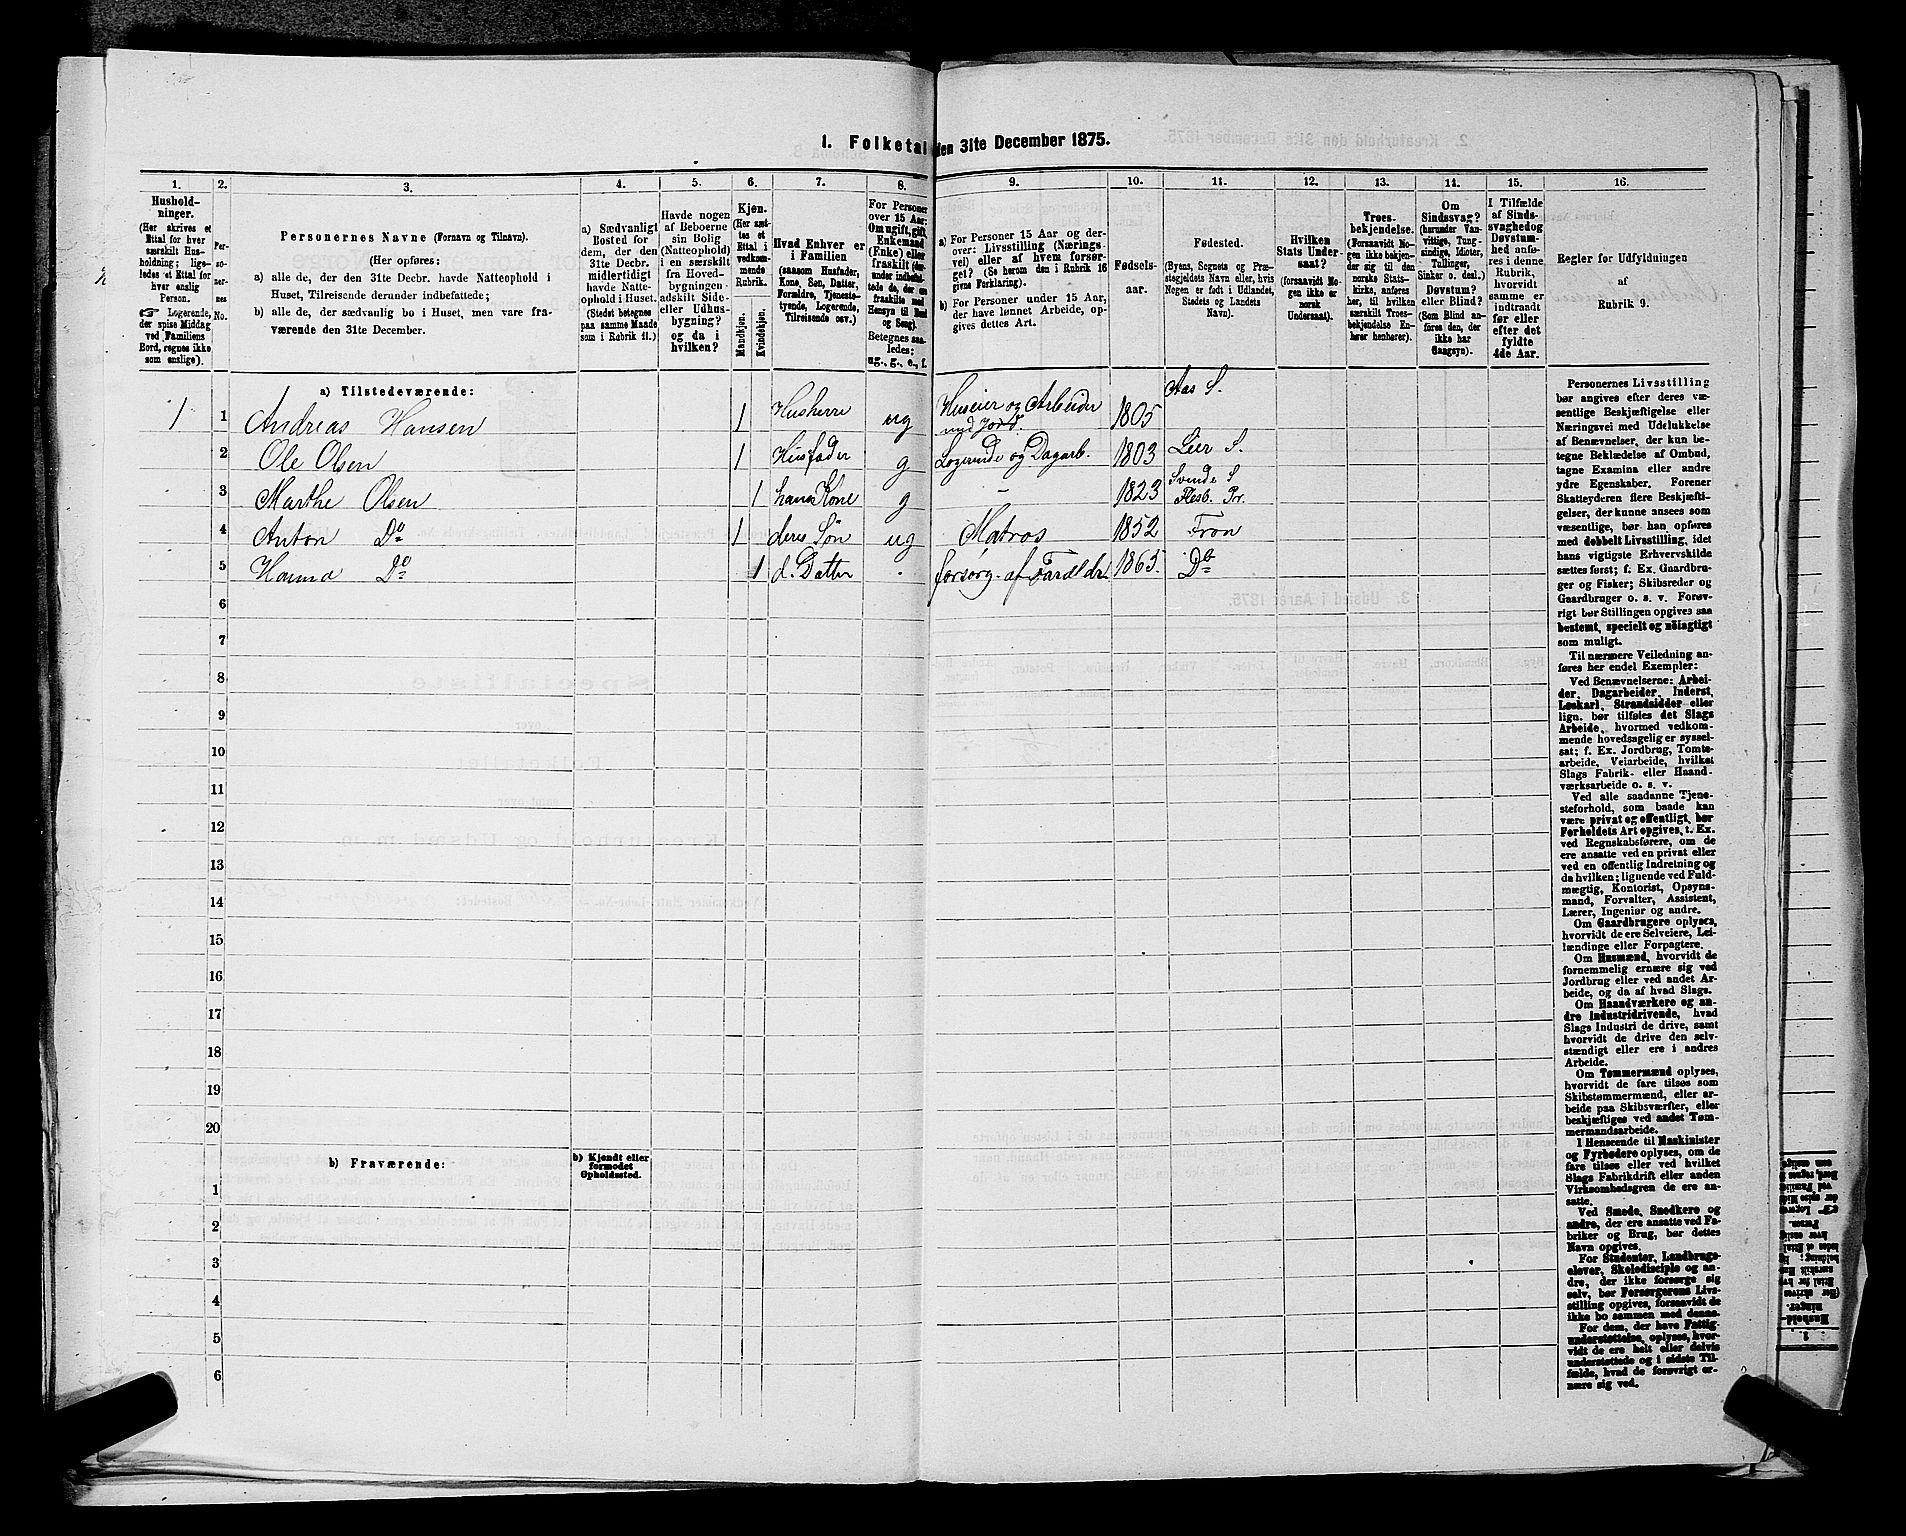 1. Folketal den 31te December 1875.
1. 2. 3. 4. 5. 6. 7. 8. 9. 10. 11. 12. 13. 14. 15. 16.
Hushold-
ninger.
(Her skrives et
Ettal for hver
særskilt Hus-
holdning; lige-
ledes et Ettal for
hver enslig
Person.
☞ Logerende,
der spise Middag
ved Familiens
Bord, regnes ikke
som enslige).
Per-
so-
ner-
nes
No.
Personernes Navne (Fornavn og Tilnavn).
(Her opføres:
a) alle de, der den 31te Decbr. havde Natteophold i
Huset, Tilreisende derunder indbefattede;
b) alle de, der sædvanlig bo i Huset, men vare fra-
værende den 31te December.
a) Sædvanligt
Bosted for
dem, der den
31te Decbr.
midlertidigt
havde Natte-
ophold i Huset.
(Stedet betegnes
paa samme Maade
som i Rubrik 11.)
Havde nogen
af Beboerne
sin Bolig
(Natteophold)
i en særskilt
fra Hoved-
bygningen
adskilt Side-
eller Udhus-
bygning?
og da i
hvilken?
Kjøn.
(Her sæt-
tes et
Ettal i
vedkom-
mende
Rubrik.
Mandkjøn.
Kvindekjøn.
Hvad Enhver er
i Familien
(saasom Husfader,
Kone, Søn, Datter,
Forældre, Tjeneste-
tyende, Logerende,
Tilreisende osv.)
For Personer
over 15 Aar:
Om ugift, gift,
Enkemand
(Enke) eller
fraskilt (der-
under indbefat-
tede de, der ere
fraskilte med
Hensyn til Bord
og Seng).
Betegnes saa-
ledes:
ug., g., e., f.
a) For Personer 15 Aar og der-
over: Livsstilling (Nærings-
vei) eller af hvem forsør-
get? (Se herom den i Rubrik 16
givne Forklaring).
b) For Personer under 15 Aar,
der have lønnet Arbeide, op-
gives dettes Art.
Fødsels-
aar.
Fødested.
(Byens, Sognets og Præ-
stegjeldets Navn eller, hvis
Nogen er født i Udlandet,
Stedets og Landets
Navn).
Hvilken
Stats Under-
saat?
(forsaavidt No-
gen ikke er
norsk
Undersaat).
Troes-
bekjendelse.
(Forsaavidt No-
gen ikke bekjen-
der sig til den
norske Stats-
kirke, anføres
her, til hvilken
særskilt Troes-
bekjendelse En-
hver henhører).
Om
Sindssvag?
(herunder Van-
vittige, Tung-
sindige, Idioter,
Tullinger,
Sinker o. desl.)
Døvstum?
eller Blind?
(Som Blind an-
føres den, der
ikke har
Gangsyn).
I Tilfælde
af Sinds-
svaghed og
Døvstum-
hed anfø-
res i denne
Rubrik,
hvorvidt
samme er
indtraadt
før eller
efter det
fyldte
4de Aar.
Regler for Udfyldningen
af
Rubrik 9.
a) Tilstedeværende:
1 1 Andreas Hansen 1 Husherre ug Huseier og Arbeider med Jord. 1805 Aas S.
2 Ole Olsen 1 Husfader g Logerende og Dagarb. 1803 Lier S.
3 Marthe Olsen 1 hans Kone g - 1823 Svende S Flesb. Pr.
4 Anton Do 1 deres Søn ug Matros 1852 Fron
5 Hanna Do 1 d. Datter - forsørg. af Foræld. 1865. Do
6
7
8
9
10
11
12
13
14
15
16
17
18
19
20
b) Fraværende:
b) Kjendt eller
formodet
Opholdssted.
1
2
3
4
5
6
Personernes Livsstilling
bør angives efter deres væ-
sentlige Beskjæftigelse eller
Næringsvei med Udelukkelse
af Benævnelser, der kun be-
tegne Beklædelse af Ombud,
tagne Examina eller andre
ydre Egenskaber. Forener
Skatteyderen flere Beskjæfti-
gelser, der kunne ansees som
væsentlige, bør han opføres
med dobbelt Livsstilling, idet
hans vigtigste Erhvervskilde
sættes først; f. Ex. Gaardbru-
ger og Fisker; Skibsreder og
Gaardbruger o. s. v. Forøv-
rigt bør Stillingen opgives saa
bestemt, specielt og nøiagtigt
som muligt.
Til nærmere Veiledning an-
føres her endel Exempler:
Ved Benævnelserne: Arbei-
der, Dagarbeider, Inderst,
Løskarl, Strandsidder eller
lign. bør tilføies det Slags
Arbeide, hvormed vedkom-
mende hovedsagelig er syssel-
sat; f. Ex. Jordbrug, Tomte-
arbeide, Veiarbeide, hvilket
Slags Fabrik- eller Haand-
værksarbeide o. s. v.
Ved alle saadanne Tjene-
steforhold, som baade kan
være privat og offentligt, bør
Forholdets Art opgives, t. Ex.
ved Regnskabsførere, om de
ere ansatte ved en privat eller
ved en offentlig Indretning og
da hvilken; lignende ved Fuld-
mægtig, Kontorist, Opsyns-
mand, Forvalter, Assistent,
Lærer, Ingeniør og andre.
Om Gaardbrugere oplyses,
hvorvidt de ere Selveiere, Lei-
lændinge eller Forpagtere.
Om Husmænd, hvorvidt de
fornemmelig ernære sig ved
Jordbrug eller ved andet Ar-
beide, og da af hvad Slags.
Om Haandværkere og an-
dre Industridrivende, hvad
Slags Industri de drive, samt
hvorvidt de drive den selv-
stændigt eller ere i andres
Arbeide.
Om Tømmermænd oplyses,
hvorvidt de fare tilsøs som
Skibstømmermænd, eller ar-
beide paa Skibsværfter, eller
beskjæftiges ved andet Tøm-
mermandsarbeide.
I Henseende til Maskinister
og Fyrbødere oplyses, om de
fare tilsøs eller ved hvilket
Slags Fabrikdrift eller anden
Virksomhedsgren de ere an-
satte.
Ved Smede, Snedkere og
andre, der ere ansatte ved Fa-
briker og Brug, bør dettes
Navn opgives.
For Studenter, Landbrugs-
elever, Skoledisciple og an-
dre, der ikke forsørge sig
selv, bør Forsørgerens Livs-
stilling opgives, forsaavidt de
ikke bo sammen med denne.
For dem, der have Fattig-
understøttelse, oplyses, hvor-
vidt de ere helt eller delvis
understøttede og i sidste Til-
fælde, hvad de forøvrigt er-
nære sig ved.